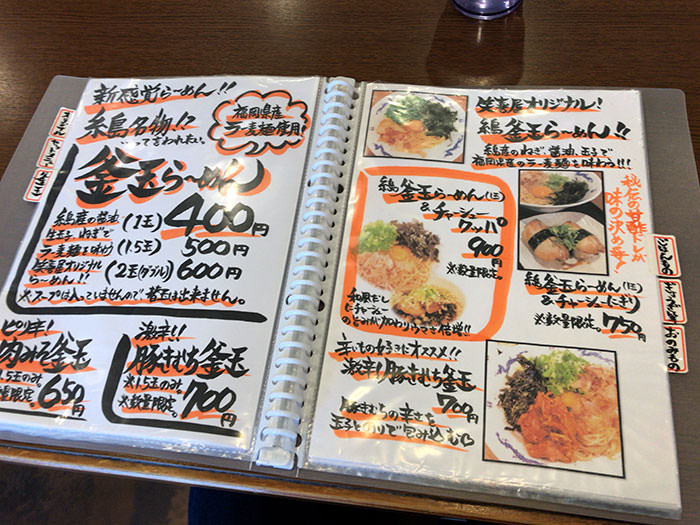 新感覚らーめん!!
糸島名物!?
いつか言われたい。
福岡県産
ラー麦麺使用!
釜玉らーめん
糸島産の醤油
生玉子、ねぎで
ラー麦麺を味わう
笙喜屋オリジナル
らーめん!!
(1玉) 400円
(1.5玉) 500円
2玉(ダブル) 600円
※スープは入っていませんので替玉は出来ません。
ピリ辛!
肉みそ釜玉
1.5玉のみ
650円
激辛!!
豚きむち釜玉
※1.5玉のみ
※数量限定。
700円
笙喜屋オリジナル!
糸島釜玉らーめん!!
糸島産のねぎ、醤油、玉子で
福岡県産のラー麦麺を味わう!!!
糸島釜玉らーめん(1玉)
&チャーシュー
クッパ
900円
※数量限定。
和風だし
にチャーシュー
の旨みが加わりウマさ倍増!!
秘伝の甘酢ダレが
味の決め手!
糸島釜玉らーめん(1玉)
&チャーシューにぎり
※数量限定。 750円
辛いもの好きにオススメ!!
激辛り豚きむち釜玉
700円
豚きむちの辛さを
玉子とのりで包み込む
ごはんもの
ぎょうざ等
おのみもの